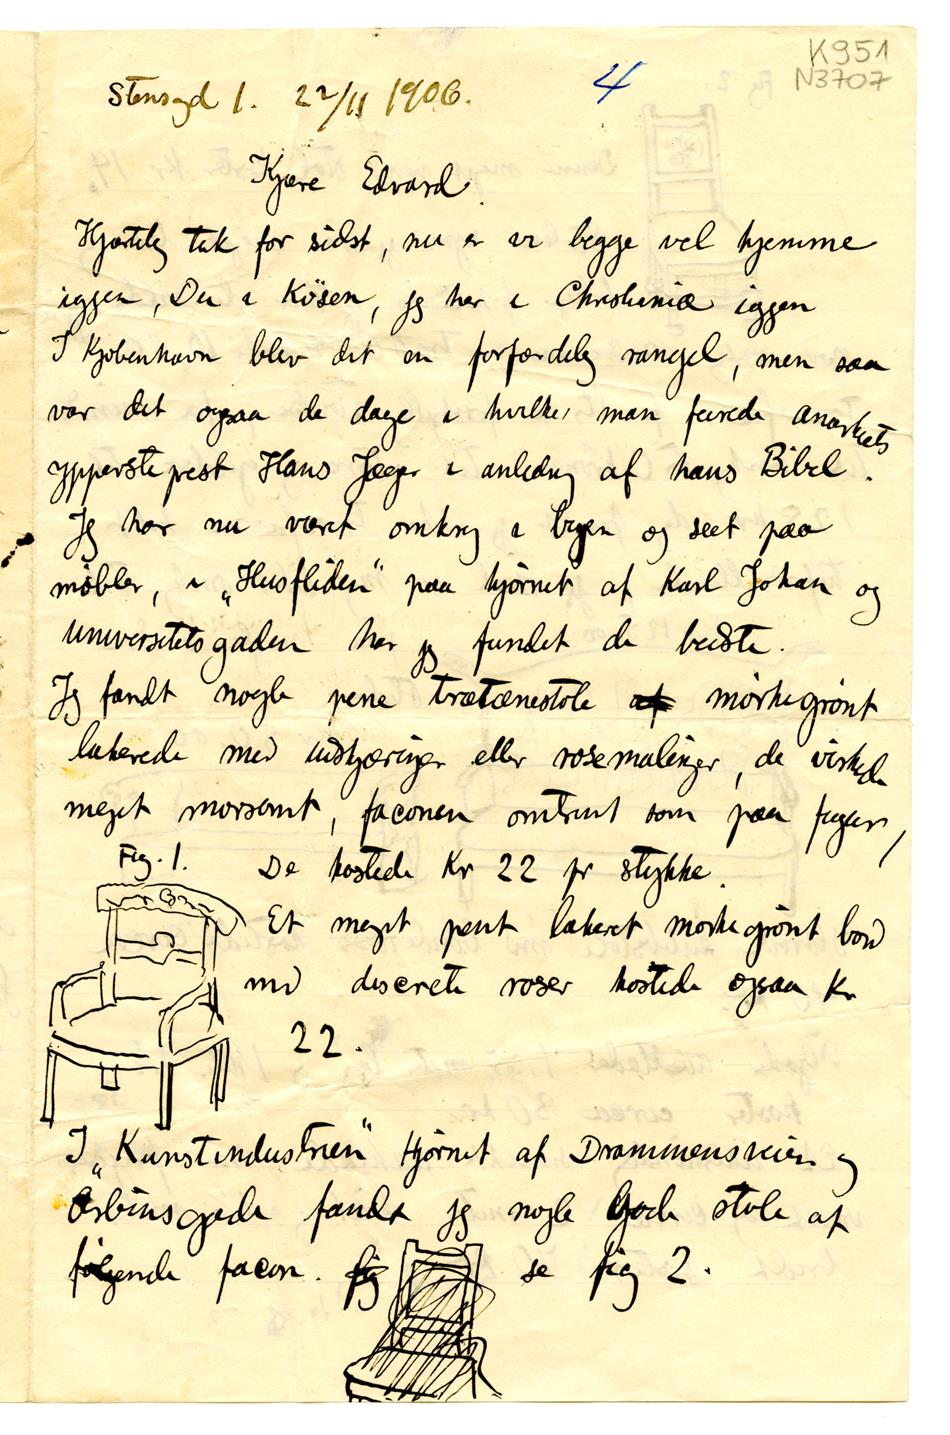 K951
N3707
4
Stensgd 1. 22/11 1906.
Kjære Edvard.
Hjærtelig tak for sidst, nu er vi begge vel hjemme
iggen, Du i Kösen, jeg her i Christiania iggen
I Kjøbenhavn blev det en forfærdelig rangel, men saa
var det ogsaa de dage i hvilke man feirede anarkiets
ypperstepræst Hans Jæger i anledng af hans Bibel.
Jeg har nu været omkrng i byen og seet paa
møbler, i "Husfliden" paa hjørnet af Karl Johan og
Universitetsgaden har jeg fundet de bedste.
Jeg fandt nogle pene trætænestole af mørkegrønt
lakerede med udskjæringer eller rosemalinger, de virkede
meget morsomt, faconen omtrent som paa figuren,
Fig. 1.
De kostede Kr 22 pr stykke.
Et meget pent lakeret mørkegrønt bord
med discrete roser kostede ogsaa Kr
22.
I "Kunstindustrien" Hjørnet af Drammensveien og
Arbinsgade fandt jeg nogle gode stole af
følgende facon. fig se fig 2.